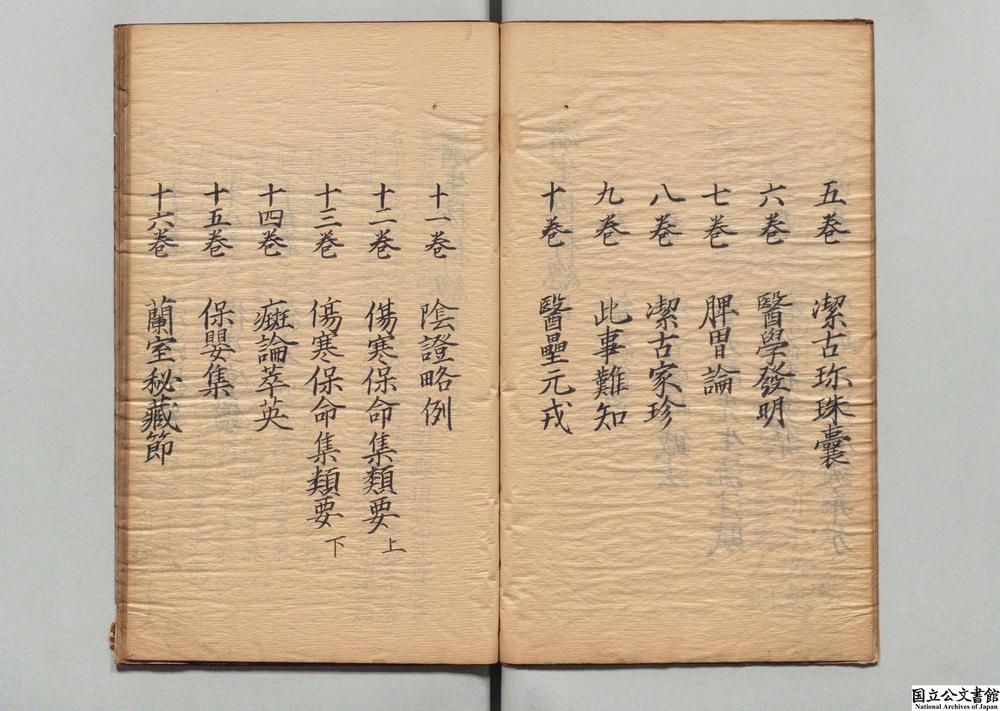 五巻 潔古珎珠囊
六巻 醫學發明
七巻 脾胃論
八巻 潔古家珍
九巻 此事難知
十巻 醫壘元戎
十一巻 陰證略例
十二巻 傷寒保命集類要 上
十三巻 傷寒保命集類要 下
十四巻 癍論萃英
十五巻 保嬰集
十六巻 蘭室秘藏節
国立公文書館
National Archives of Japan